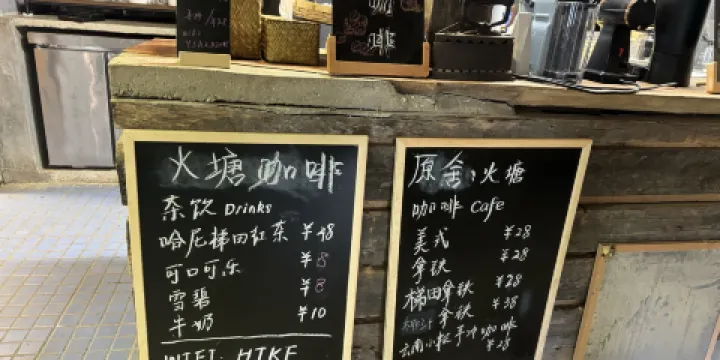 咖
啡
火塘咖啡
茶饮 Drinks
哈尼梯田红茶 ¥48
可口可乐 ¥8
雪碧 ¥8
牛奶 ¥10
WIFI: HTKF
原舍·火塘
咖啡 Cafe
美式 ¥28
拿铁 ¥28
梯田拿铁 ¥28
拿铁 ¥38
云南小粒手冲咖啡
¥28